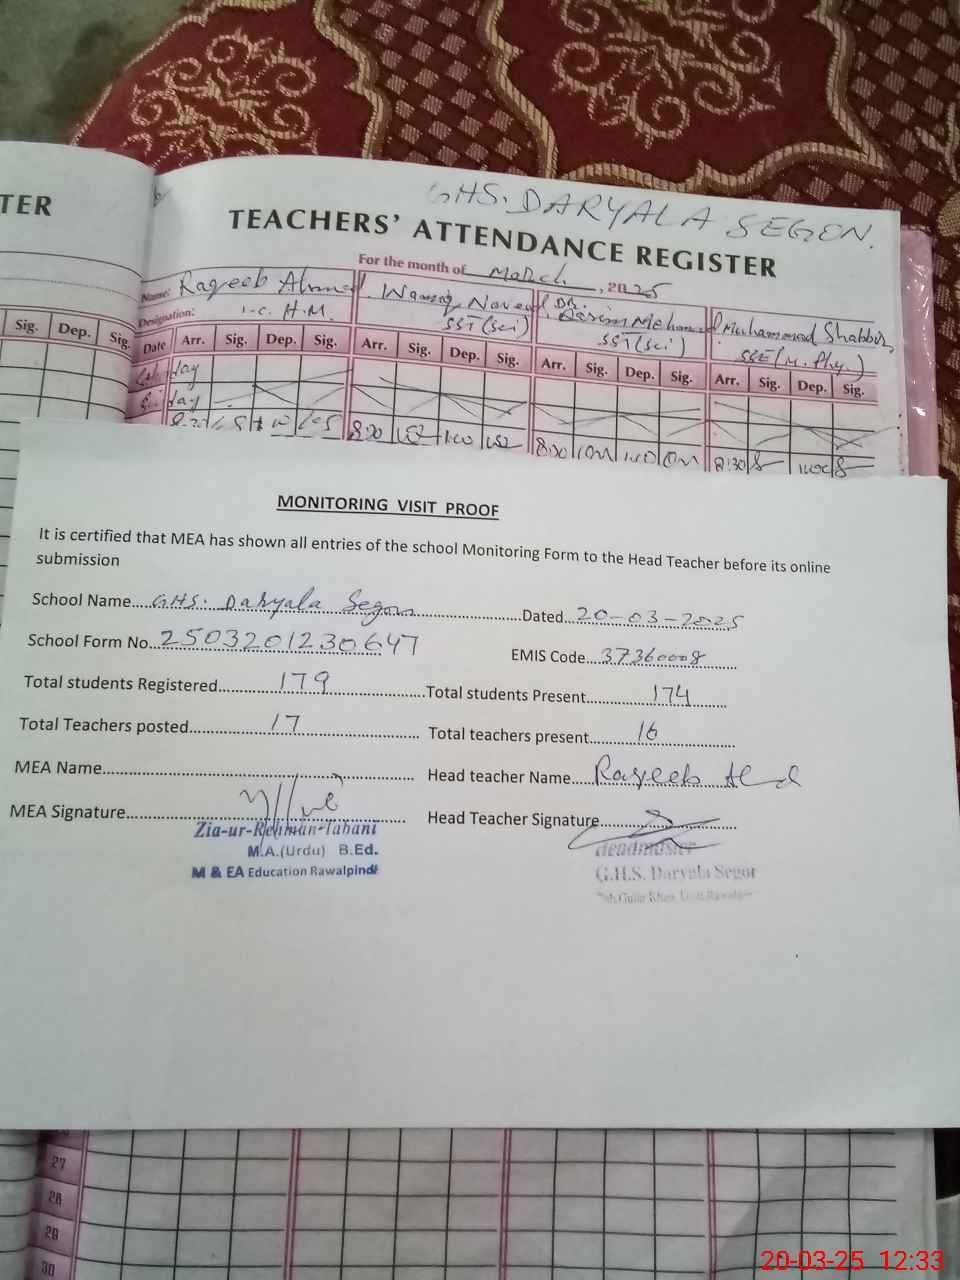 TER
Sig. Dep. Sig.
GHS. DARYALA SEGON.
TEACHERS' ATTENDANCE REGISTER
For the month of March, 2025
Name: Raqeeb Ahmed Naveed DR. Muhammad Shabbir
Designation: I-C. H.M. SST(sci) SST(sci) SSE(M. Phy)
Date Arr. Sig. Dep. Sig. Arr. Sig. Dep. Sig. Arr. Sig. Dep. Sig. Arr. Sig. Dep. Sig.
day
day
8:30 8:00 8:30
MONITORING VISIT PROOF
It is certified that MEA has shown all entries of the school Monitoring Form to the Head Teacher before its online
submission
School Name....GHS. Daryala Segon....Dated..20-03-2025
School Form No..2503201230647 EMIS Code...37360008
Total students Registered....179....Total students Present....174
Total Teachers posted....17.... Total teachers present....16
MEA Name.... Head teacher Name....Raqeeb
MEA Signature.... Head Teacher Signature....
Zia-ur-Rehman-Tabani
M.A.(Urdu) B.Ed.
M & EA Education Rawalpindi
Headmaster
G.H.S. Daryala Segon
27
28
29
30
20-03-25 12:33